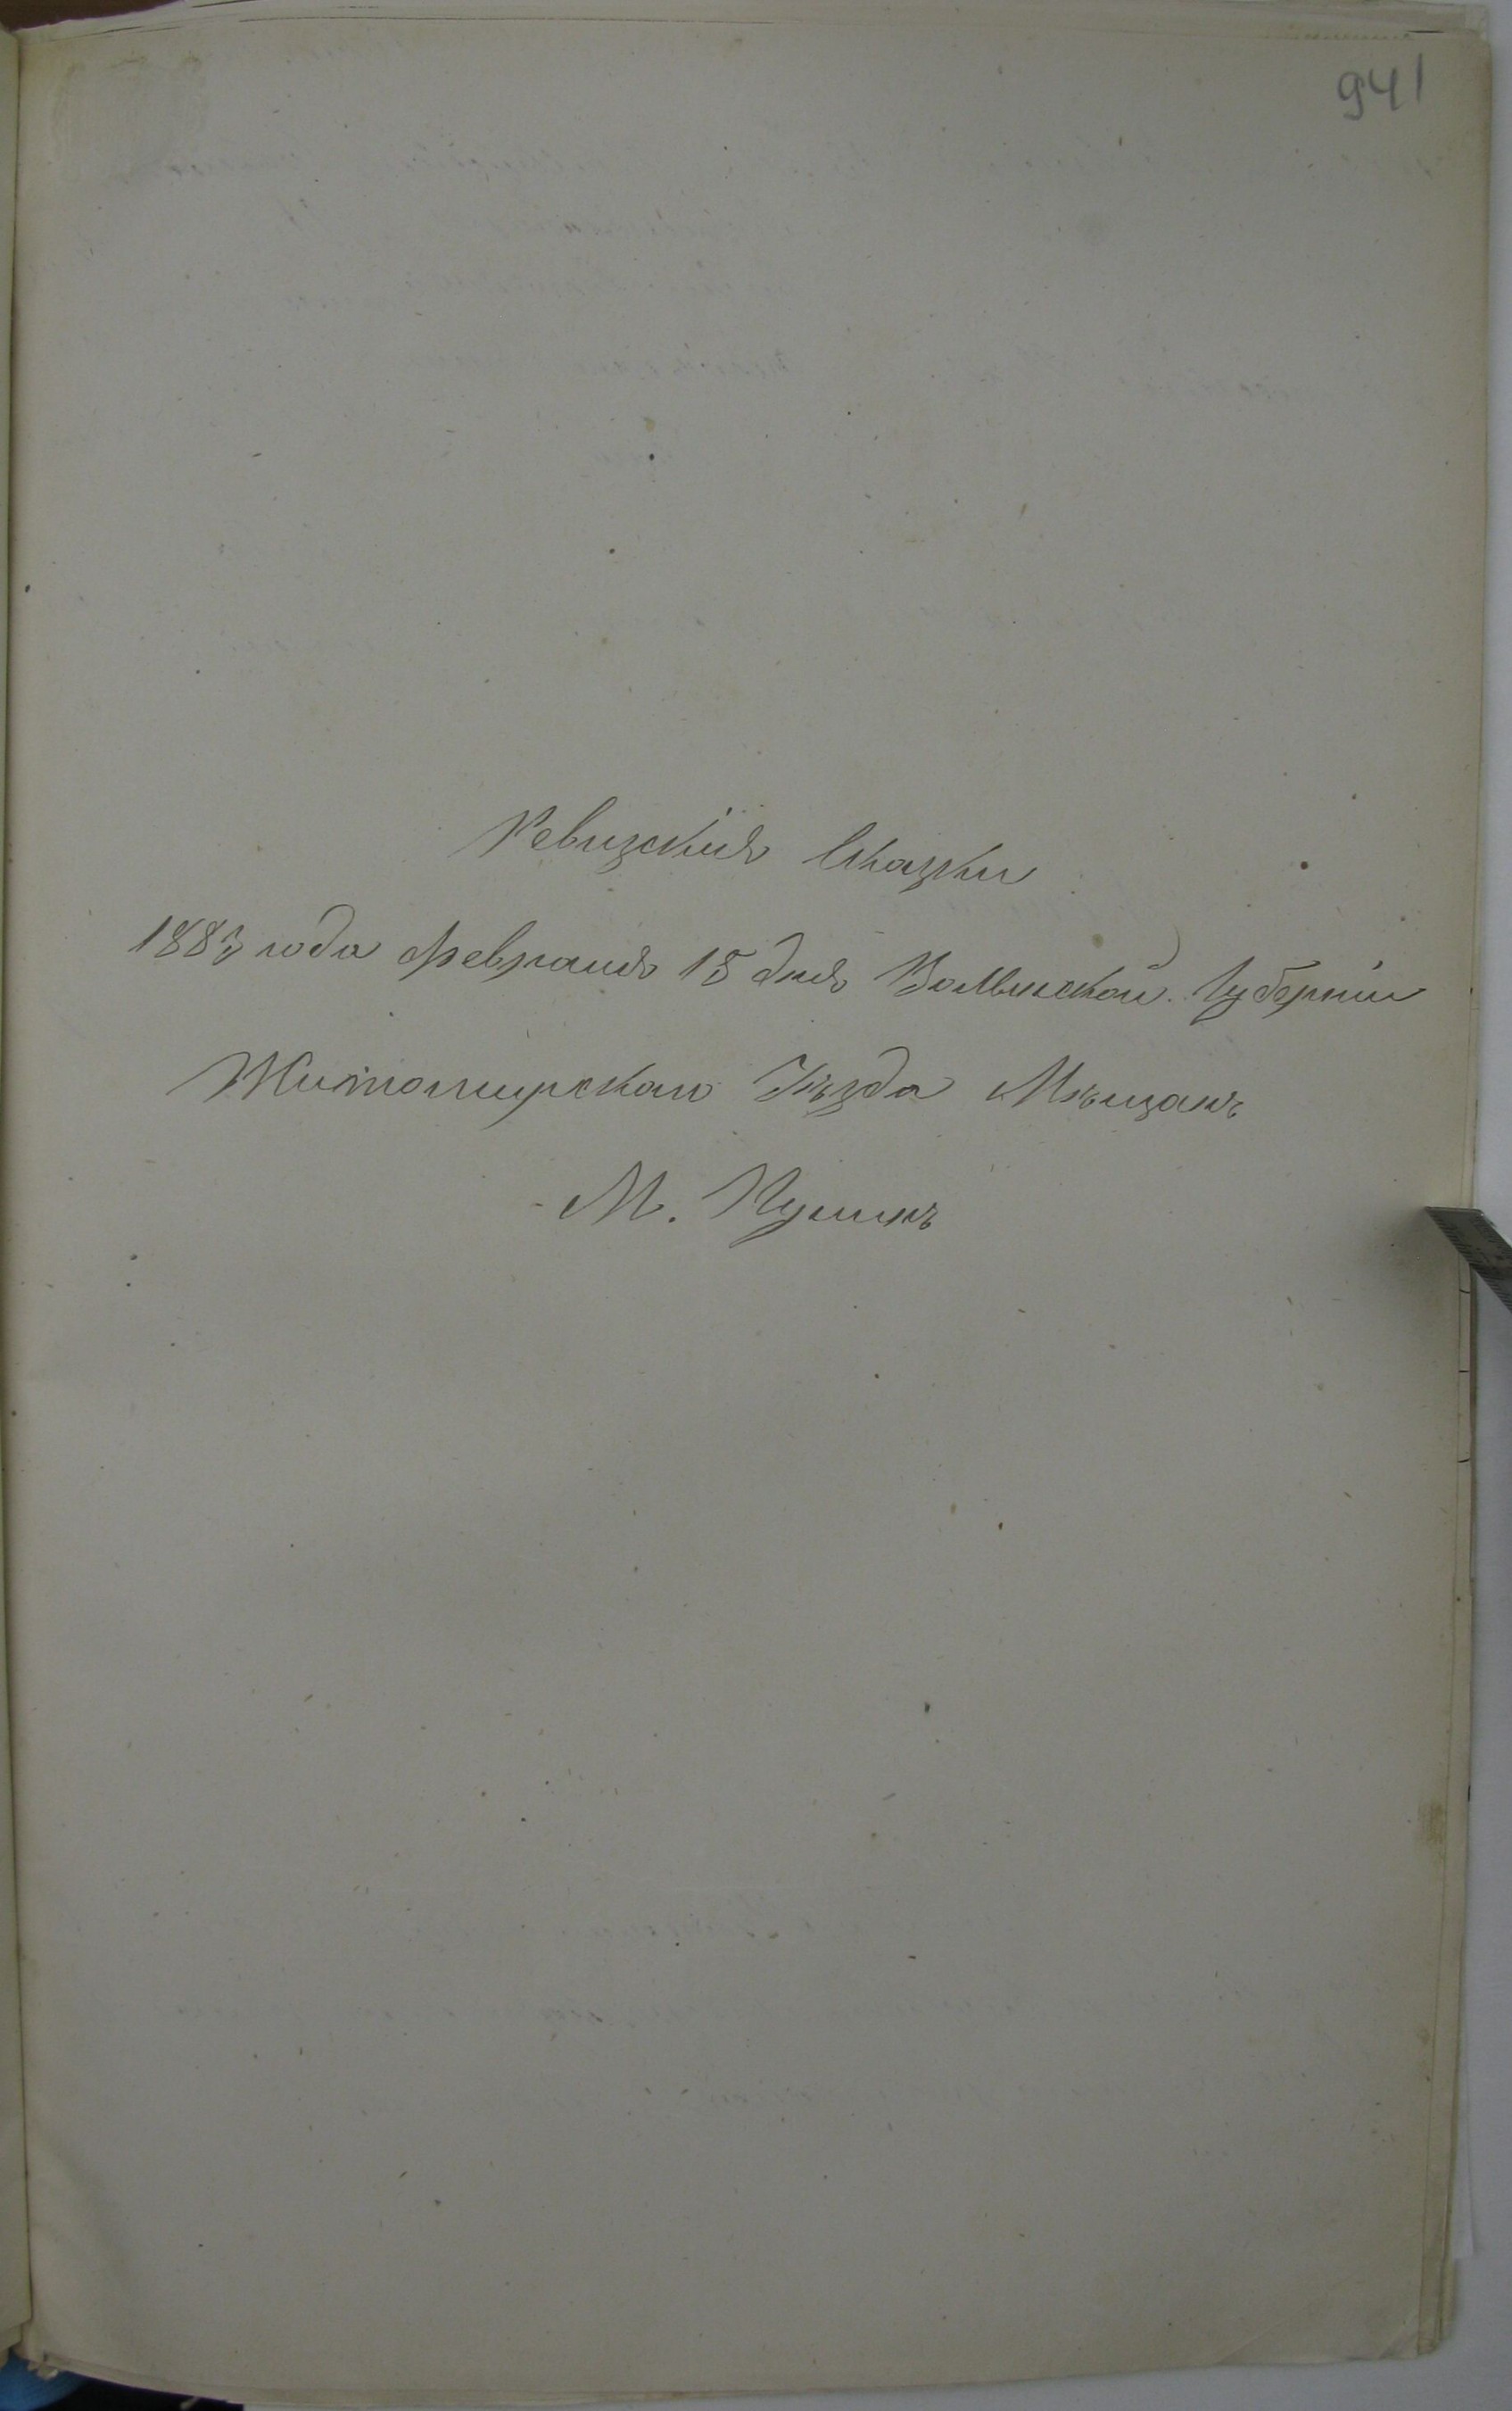 941
Ревизскія Сказки
1883 года Февраля 15 дня Волынской Губерніи
Житомирскаго Уѣзда Мѣщанъ
М. Пулинъ